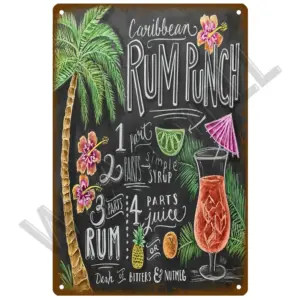 Caribbean
RUM PUNCH
1 part
2 PARTS simple SYRUP
3 PARTS RUM
4 PARTS juice
OR
Dash of BITTERS & NUTMEG